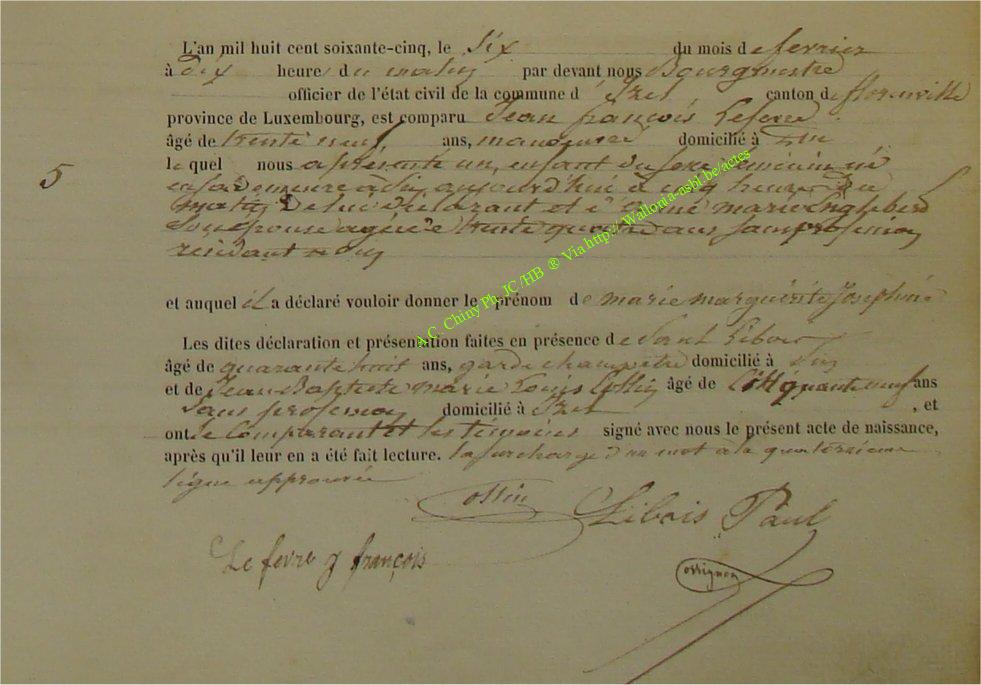 L'an mil huit cent soixante-cinq, le six du mois de fevrier
à dix heure du matin par devant nous Bourgmestre
officier de l'état civil de la commune d' Izel canton de florenville
province de Luxembourg, est comparu Jean françois Lefevre
âgé de trente neuf ans, manoeuvre domicilié à
5
le quel nous a présenté un enfant du sexe féminin né
en sa demeure à aujourd'hui à cinq heures du
matin de lui déclarant et d' marie
son épouse agée de trente quatre ans sans profession
résidant
et auquel il a déclaré vouloir donner le prénom de marie marguerite Josephine
Les dites déclaration et présentation faites en présence de Paul Libois
âgé de quarante huit ans, garde champetre domicilié à
et de Jean Baptiste marie Louis âgé de cinquante neuf ans
sans profession domicilié à Izel , et
ont le comparant et les témoins signé avec nous le présent acte de naissance,
après qu'il leur en a été fait lecture. la surcharge d'un mot à la quatorzième
ligne approuvée
Libois Paul
Le fevre j françois
ossignon
A.C. Chiny Ph. JC /HB ® Via http://Wallonia-asbl.be/actes